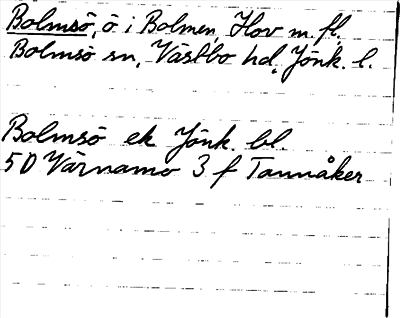 Bolmsö, ö i Bolmen, Hov m. fl.
Bolmsö sn, Västbo hd, Jönk. l.
Bolmsö ek Jönk. bl.
5D Värnamo 3 f Tannåker